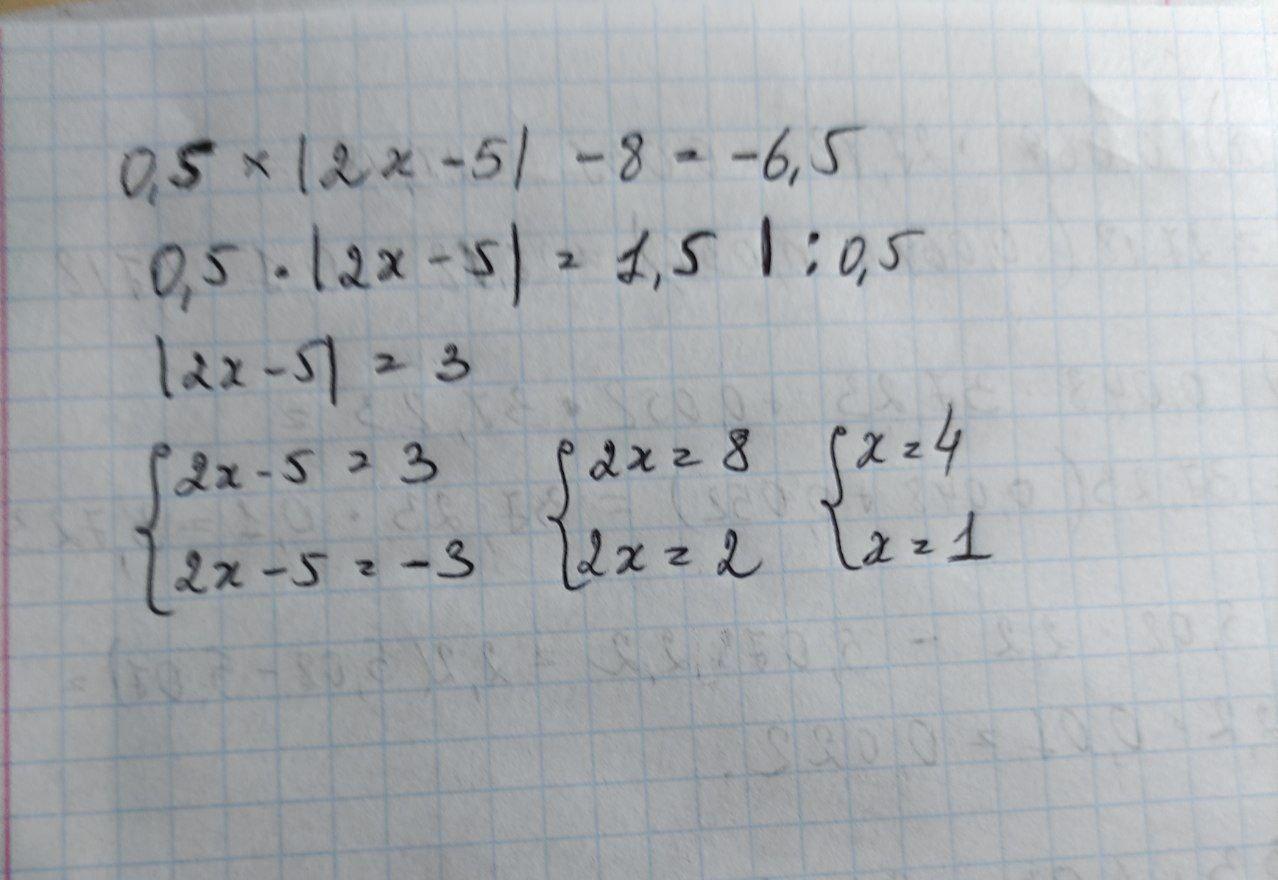 0,5 × |2x - 5| - 8 = -6,5
0,5 · |2x - 5| = 1,5 | : 0,5
|2x - 5| = 3
{ 2x - 5 = 3 { 2x = 8 { x = 4
2x - 5 = -3 2x = 2 x = 1